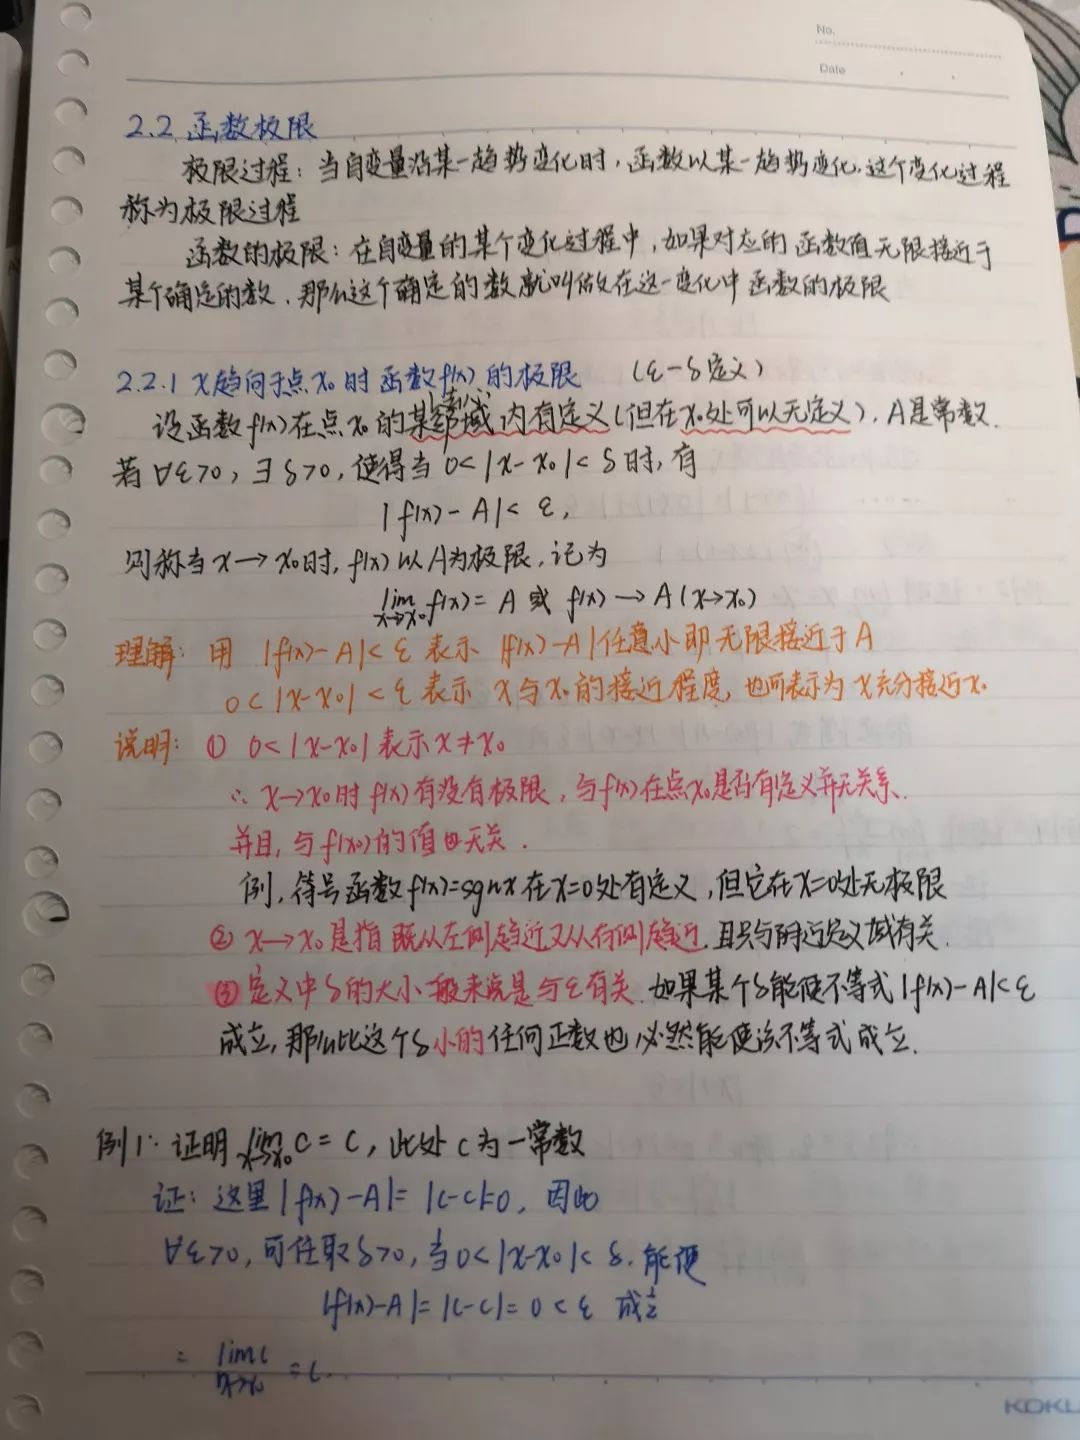 No.
Date
2.2 函数极限
极限过程：当自变量沿某一趋势变化时，函数以某一趋势变化，这个变化过程
称为极限过程
函数的极限：在自变量的某个变化过程中，如果对应的函数值无限接近于
某个确定的数，那么这个确定的数就叫做在这一变化中函数的极限
2.2.1 x趋向于点x₀时函数f(x)的极限 （ε-δ定义）
设函数f(x)在点x₀的某邻域内有定义（但在x₀处可以无定义），A是常数.
若∀ε>0，∃δ>0，使得当0<|x-x₀|<δ时，有
|f(x)-A|<ε，
则称当x→x₀时，f(x)以A为极限，记为
lim x→x₀ f(x)=A 或 f(x)→A(x→x₀)
理解：用 |f(x)-A|<ε 表示 |f(x)-A|任意小即无限接近于A
0<|x-x₀|<ε 表示 x与x₀的接近程度，也可表示为x充分接近x₀
说明：① 0<|x-x₀|表示x≠x₀
∴ x→x₀时f(x)有没有极限，与f(x)在点x₀是否有定义并无关系.
并且，与f(x₀)的值也无关.
例，符号函数f(x)=sgnx在x=0处有定义，但它在x=0处无极限
② x→x₀是指既从左侧趋近又从右侧趋近，且只与附近定义域有关.
③ 定义中δ的大小一般来说是与ε有关.如果某个δ能使不等式|f(x)-A|<ε
成立，那么比这个δ小的任何正数也必然能使该不等式成立.
例1：证明 lim x→x₀ C=C，此处C为一常数
证：这里|f(x)-A|=|C-C|=0，因此
∀ε>0，可任取δ>0，当0<|x-x₀|<δ，能使
|f(x)-A|=|C-C|=0<ε 成立
= lim x→x₀ C =C.